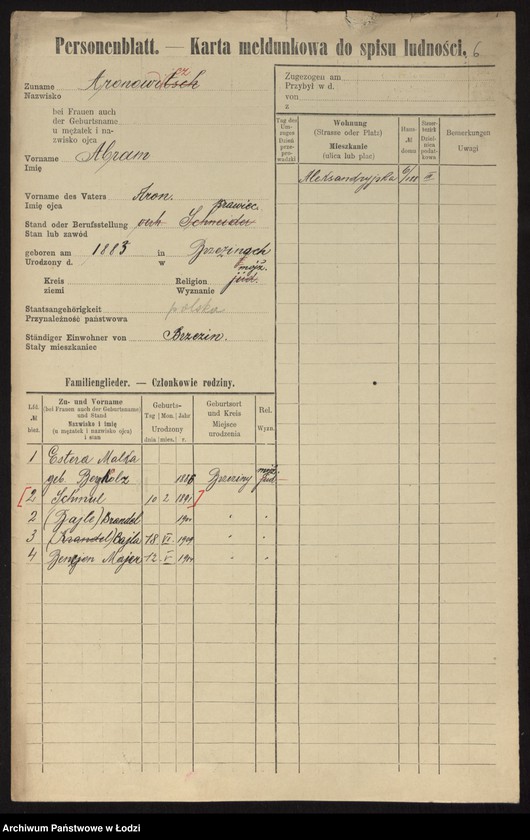 Personenblatt. — Karta meldunkowa do spisu ludności.
6
Zuname
Nazwisko
Aronowitsch
cz
bei Frauen auch
der Geburtsname
u mężatek i na-
zwisko ojca
Vorname
Imię
Abram
Vorname des Vaters
Imię ojca
Aron.
Krawiec.
Stand oder Berufsstellung
Stan lub zawód
verh Schneider
geboren am 1883 in Brzezinach
Urodzony d. w
Kreis
ziemi
Religion
Wyznanie
mojż.
jüd.
Staatsangehörigkeit
Przynależność państwowa
polska
Ständiger Einwohner von
Stały mieszkaniec
Brzezin.
Zugezogen am
Przybył w d.
von
z
Tag des Um-zuges
Dzień prze-pro-wadzki
Wohnung
(Strasse oder Platz)
Mieszkanie
(ulica lub plac)
Haus-
№
domu
Bemerkungen
Uwagi
Aleksandryjska 6/ III
Familienglieder. — Członkowie rodziny.
Lfd.
№
bież.
Zu- und Vorname
(bei Frauen auch der Geburtsname)
und Stand
Nazwisko i imię
(u mężatek i nazwisko ojca)
i stan
Geburts-
Tag Mon. Jahr
Urodzony
dnia mies. r.
Geburtsort
und Kreis
Miejsce
urodzenia
Rel.
Wyzn.
1 Estera Malka
geb. Bergholz 1886 Brzeziny mojż. jüd.
[2 Schmul 10 2 1891]
2 (Bajla) Brandel 19 " "
3 (Brandel) Bajla 18 VI 1909 " "
4 Bencjon Majer 12 V 19 " "
Archiwum Państwowe w Łodzi